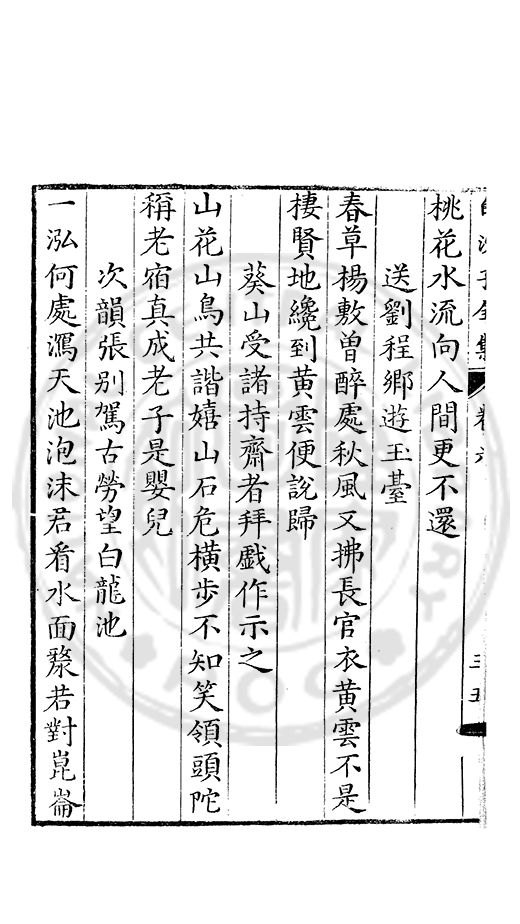 白沙子全集 卷六
桃花水流向人間更不還
送劉程鄉遊玉臺
春草楊敷曾醉處秋風又拂長官衣黃雲不是
棲賢地纔到黃雲便說歸
葵山受諸持齋者拜戲作示之
山花山鳥共諧嬉山石危橫步不知笑領頭陀
稱老宿真成老子是嬰兒
次韻張别駕古勞望白龍池
一泓何處瀉天池泡沫君看水面漦若對崑崙